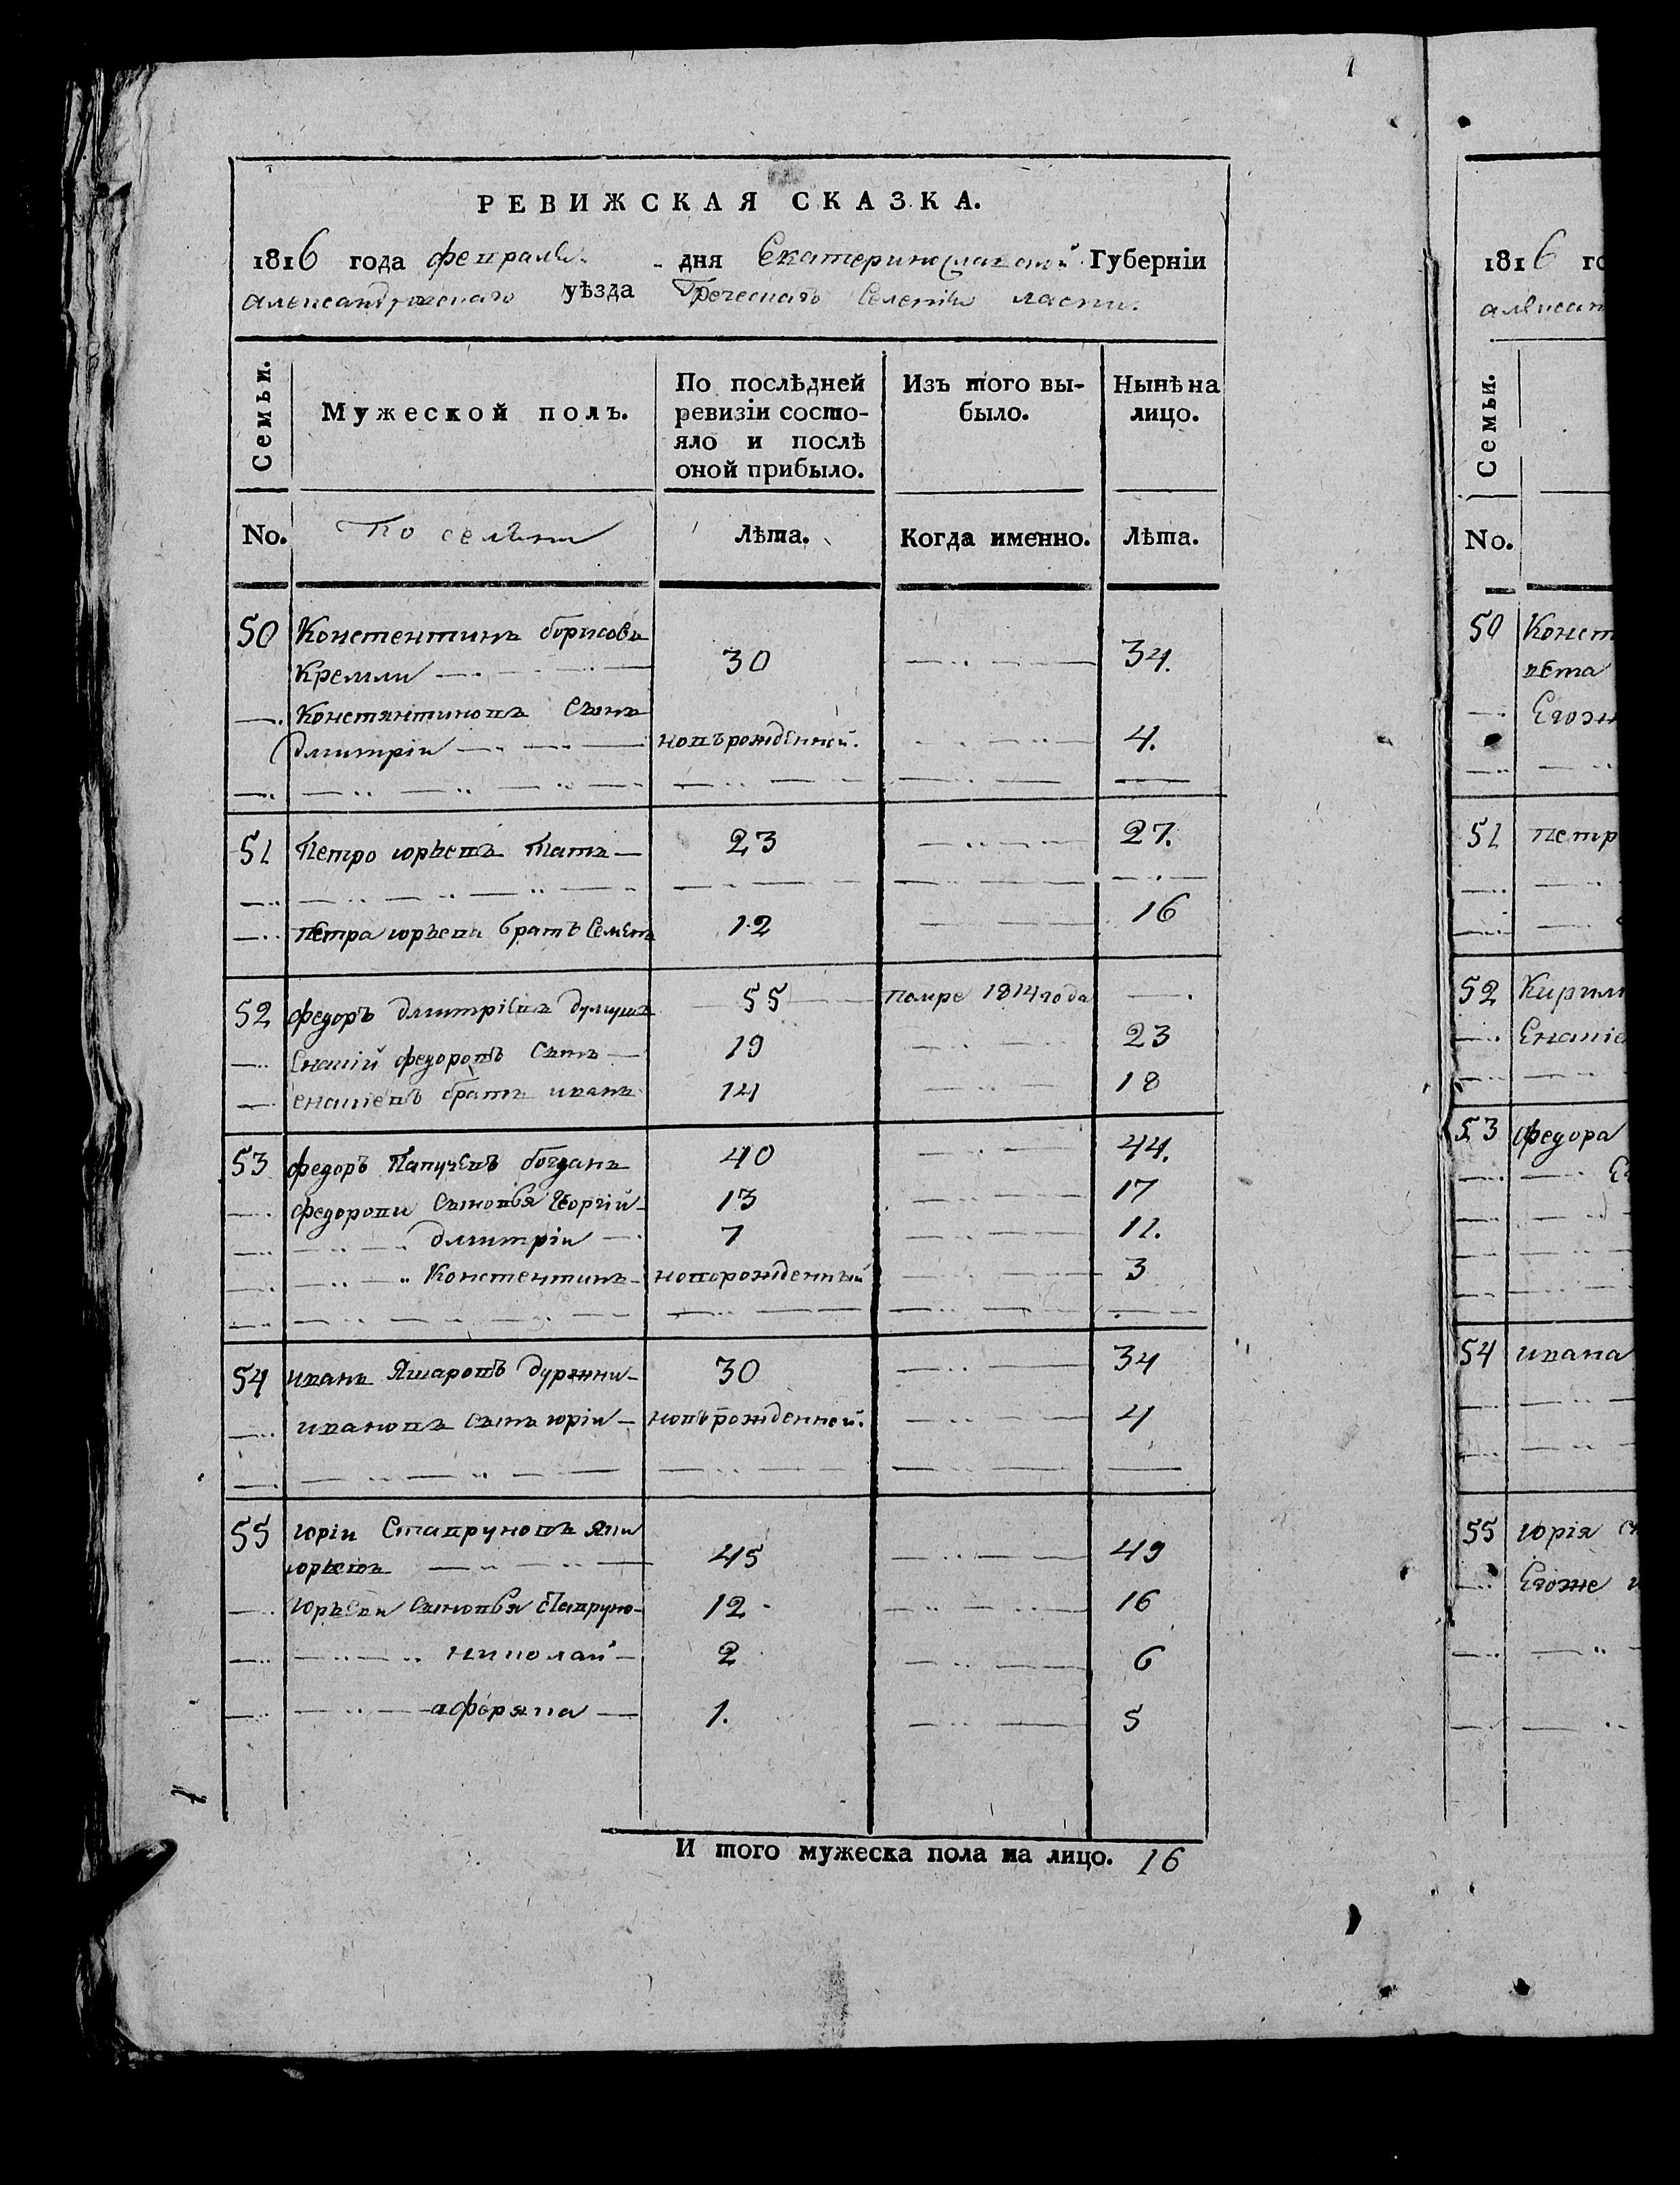 РЕВИЖСКАЯ СКАЗКА.
1816 года февраля дня Екатеринославской Губерніи
Александровскаго уѣзда Греческаго Селенія ласпи.
Семьи.
Мужеской полъ.
По послѣдней ревизіи состо-
яло и послѣ
оной прибыло.
Изъ того вы-
было.
Нынѣ на
лицо.
No. Лѣта. Когда именно. Лѣта.
50 Константинъ борисовъ
30 34.
Константиновъ Сынъ
дмитріи новърожденной. 4.
51 Петро юрьевъ 23 27.
Петра юрьева братъ Семенъ 12 16
52 федоръ дмитріевъ 55 помре 1814 года
федоровъ Сынъ 19 23
братъ иванъ 14 18
53 федоръ Папучевъ богданъ 40 44.
федорови Сыновья Георгій 13 17
дмитріи 7 11.
Константинъ новорожденный 3
54 иванъ 30 34
ивановъ Сынъ юріи новърожденной. 4
55 юріи
юрьевъ 45 49
юрьеви Сыновья 12 16
николай 2 6
1. 5
И того мужеска пола на лицо. 16
1816 го
Семьи.
No.
50 Конст
51 петр
52 Кирил
53 федора
54 ивана
55 юрія
Егоже